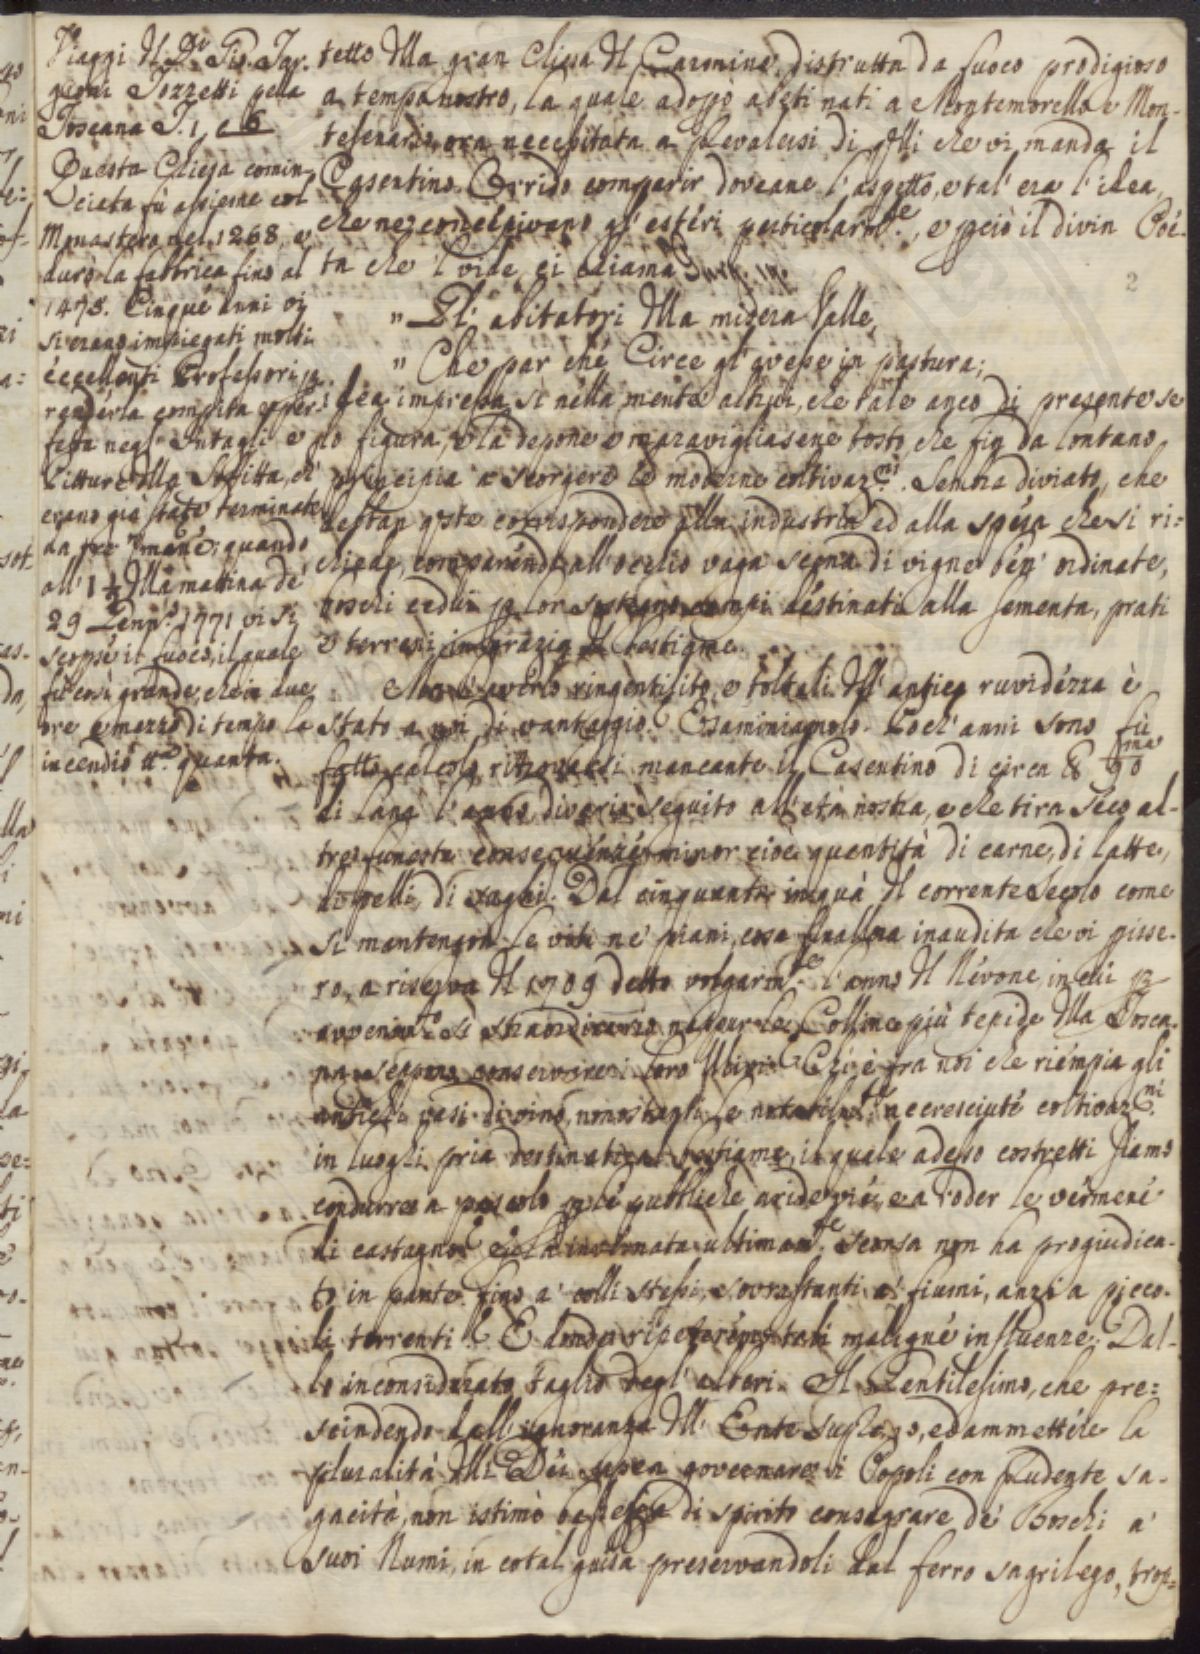 Viaggi del Dr. Gio. Tar.
gioni Tozzetti pella
Toscana T. 1, e 6
Questa Chiesa comin
ciata fù assieme col
Monastero nel 1268, e
durò la fabbrica fino al
1475. Cinque anni vi
si erano impiegati molti
eccellenti Professori p
renderla compita e per
fetta negl' Intagli e
Pitture della Soffitta, ed
erano già state terminate
quando
all' 1 1/2 della mattina de
29 Genn. 1771 vi si
scoprse il fuoco, il quale
fù così grande, che in due
ore e mezzo di tempo la
incendiò tta. quanta.
tetto della gran Chiesa del Carmine, distrutta da fuoco prodigioso
a tempo nostro, la quale adoprò abeti nati a Montemorello e Mon-
tesenario, ora necessitata a prevalersi di qlli che vi manda il
Casentino. Orrido comparir doveane l'aspetto, e tal' era l'idea,
che ne concepivano gl' esteri particolarme., e pciò il divin Poe-
ta che 'l vide ci chiama Purg. 14.
2
" Gl' abitatori della misera Valle,
" Che par che Circe gl' avesse in pastura;
idea impressa sì nella mente altrui, che tale anco di presente se
lo figura, e la depone e maravigliasene tosto che fin da lontano
principia a scorgere le moderne coltivazni. Sembra diviato, che
debban qste corrispondere alla industria ed alla spesa che si ri-
chiede, comparendo all' occhio vaga scena di vigne ben' ordinate,
boschi cedui p lor sostegno, campi destinati alla sementa, prati
e terreni in grazia del bestiame.
Ma l'averlo ringentilito, e toltali dell' antica ruvidezza è
stato a noi di vantaggio? Esaminiamolo. Poch' anni sono fù
fatto calcolo ritrovarsi mancante il Casentino di circa lb 90ma
di lana l'anno, divario seguito all' età nostra, e che tira seco al-
tre funeste conseguenze minor cioe quantità di carne, di latte,
di pelli, di vaghi. Dal cinquanta in quà del corrente Secolo come
si mantengon le viti ne' piani, cosa finallora inaudita che vi pisse-
ro, a riserva del 1709 detto volgarme. l'anno del Nevone, in cui p
avvenimto. sì straordinario neppur le Colline più tepide della Tosca-
na seppero conservare i loro Ulivi? Chi è fra noi che riempia gli
antichi vasi di vino, nonostante le notabilmte. accresciute coltivazni.
in luoghi pria destinati al bestiame, il quale adesso costretti siamo
condurre a pascolo p le pubbliche aride vie, e a roder le vermene
di castagno? e la invernata ultimamte. scorsa non ha progiudica-
to in parte fino a' colli stessi, sovrastanti a' fiumi, anzi a picco-
li torrenti? E donde ripeteremo tali maligne influenze? Dal-
lo inconsiderato taglio degl' alberi. Il Gentilesimo, che pre-
scindendo dall' ignoranza dell' Ente Supremo, ed ammettere la
pluralità delli Dei sapea governare i Popoli con prudente sa-
gacità, non istimò bassezza di spirito consagrare de' Boschi a'
suoi Numi, in cotal guisa preservandoli dal ferro sagrilego, trop-